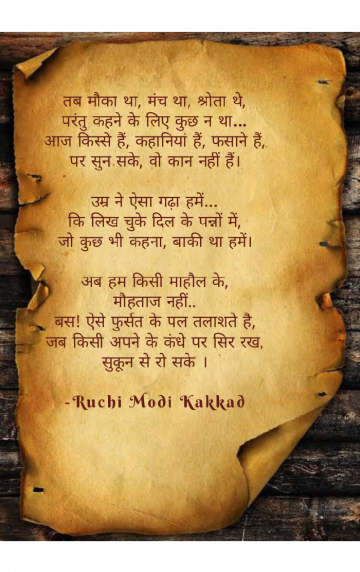 तब मौका था, मंच था, श्रोता थे,
परंतु कहने के लिए कुछ न था...
आज किस्से हैं, कहानियां हैं, फसाने हैं,
पर सुन सके, वो कान नहीं हैं।
उम्र ने ऐसा गढ़ा हमें...
कि लिख चुके दिल के पन्नों में,
जो कुछ भी कहना, बाकी था हमें।
अब हम किसी माहौल के,
मौहताज नहीं..
बस! ऐसे फुर्सत के पल तलाशते है,
जब किसी अपने के कंधे पर सिर रख,
सुकून से रो सके ।
-Ruchi Modi Kakkad